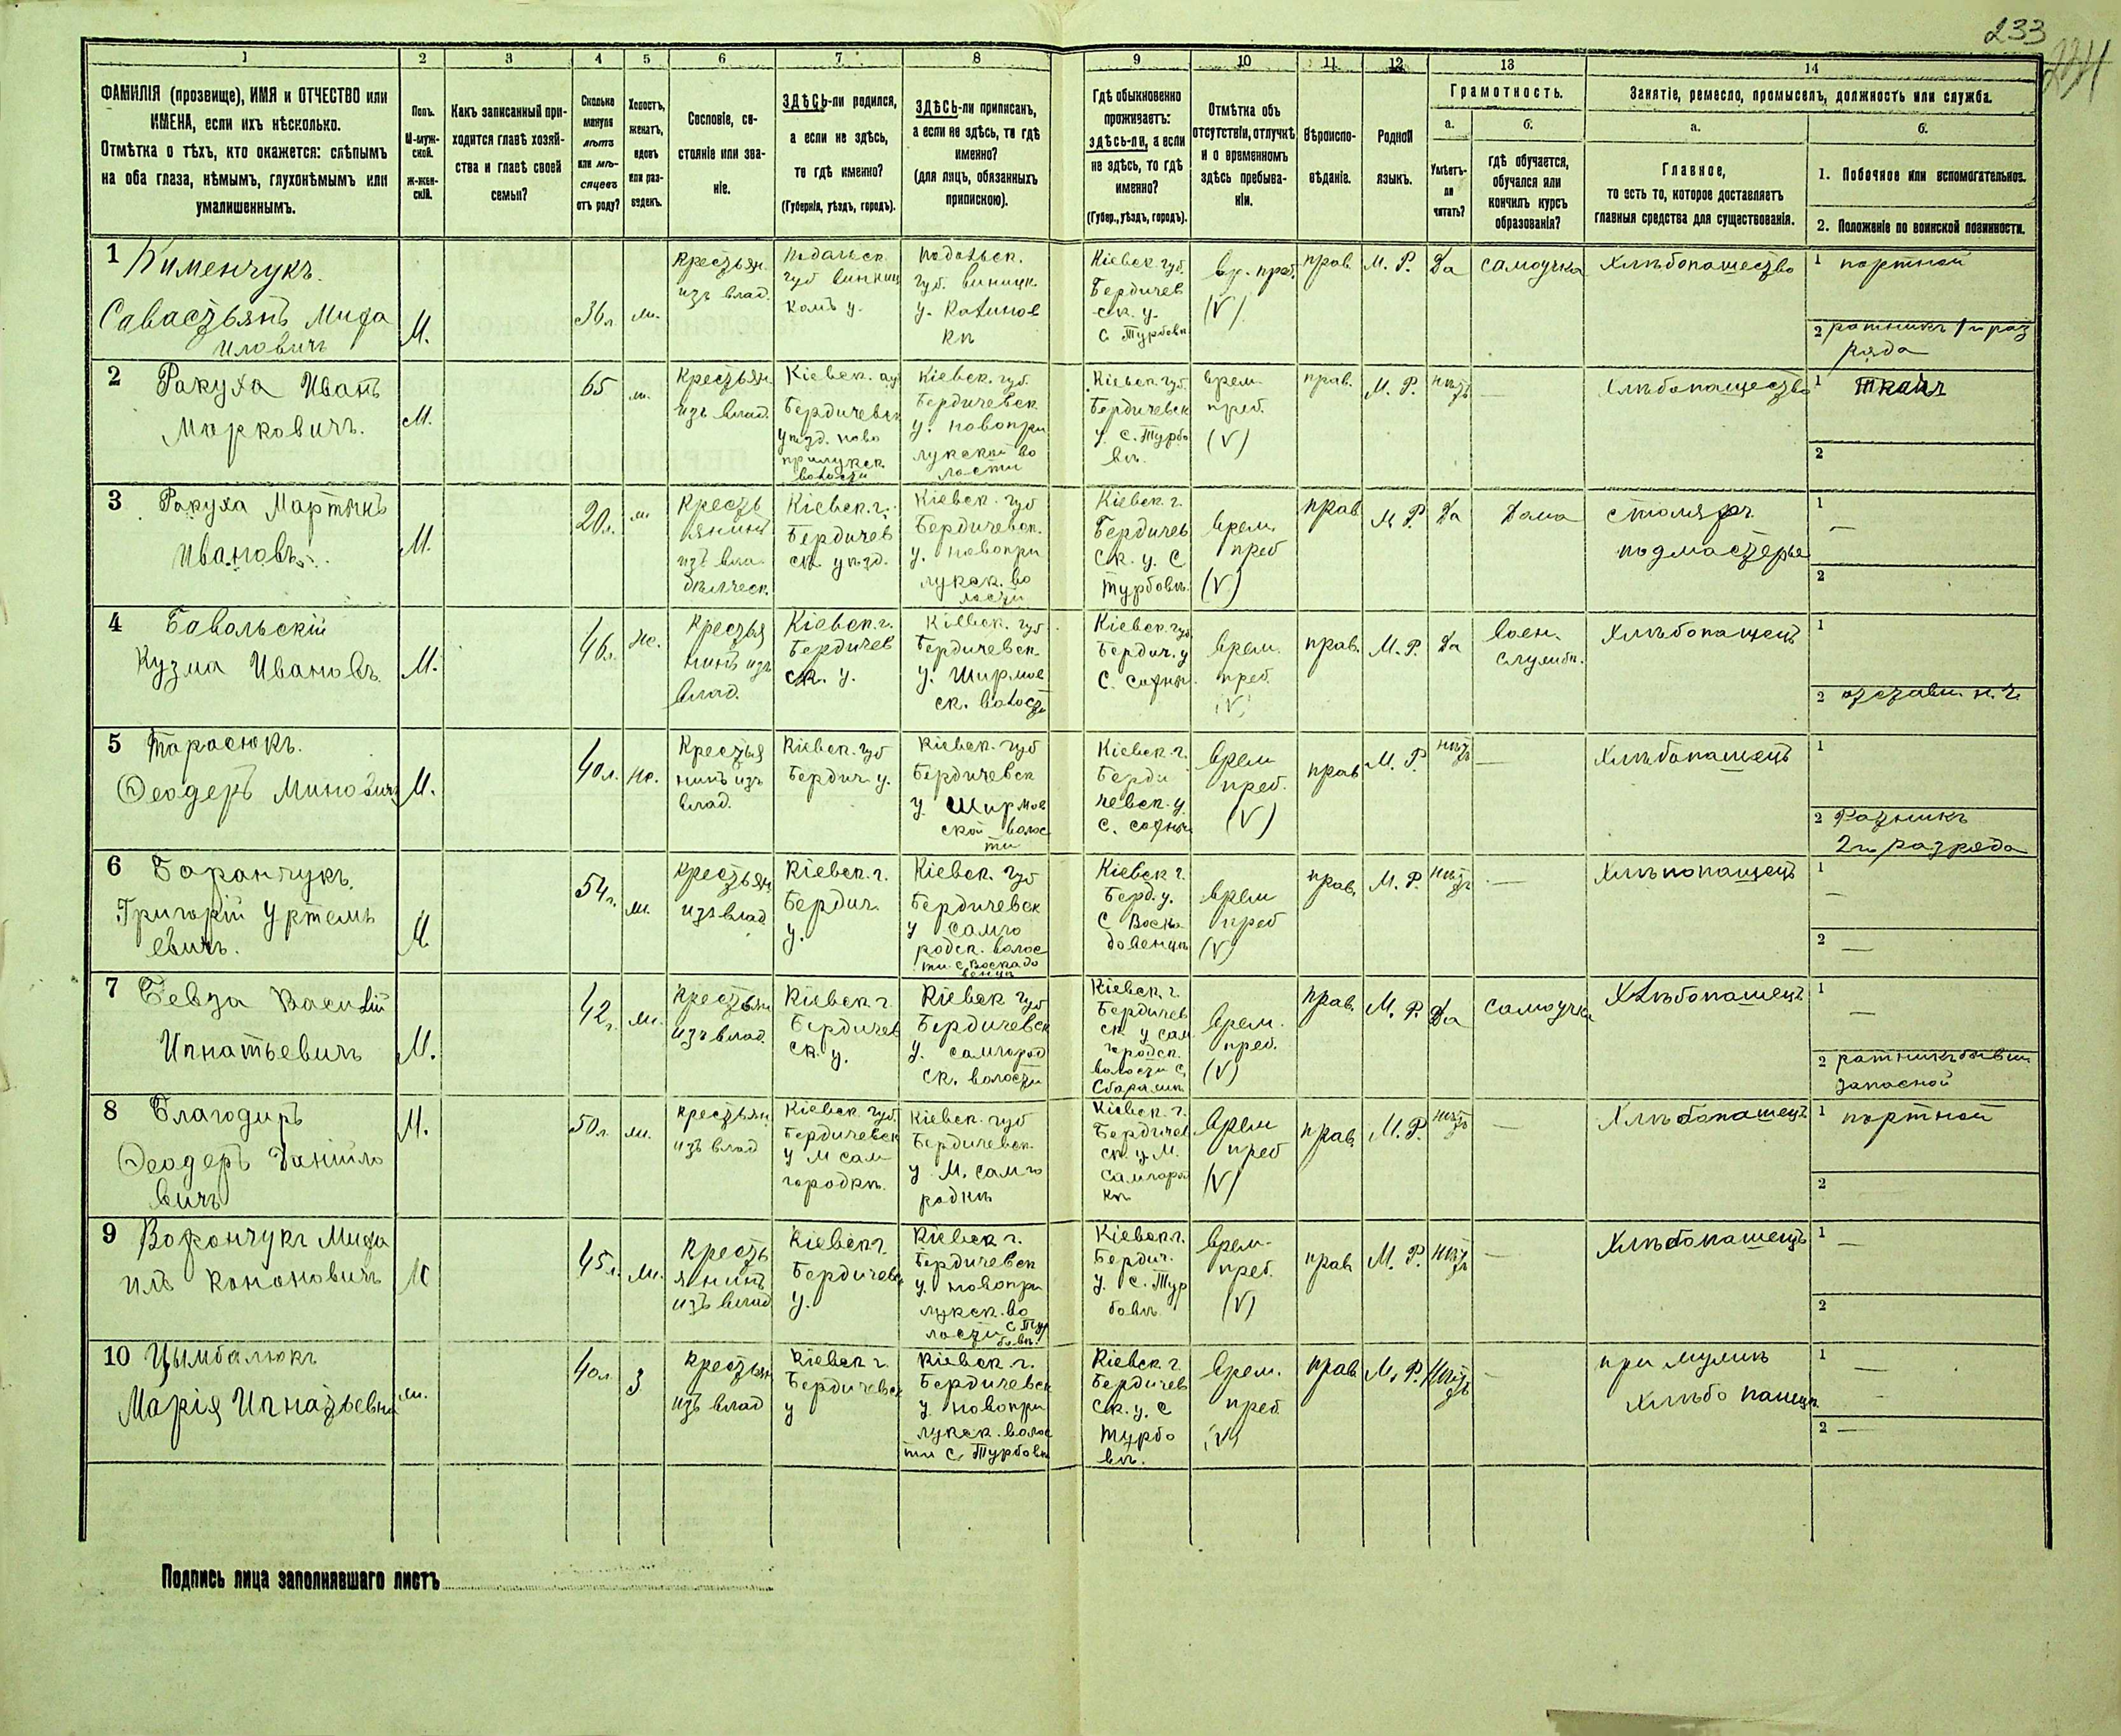 233
1 2 3 4 5 6 7 8 9 10 11 12 13 14
ФАМИЛІЯ (прозвище), ИМЯ и ОТЧЕСТВО или
ИМЕНА, если ихъ нѣсколько.
Отмѣтка о тѣхъ, кто окажется: слѣпымъ
на оба глаза, нѣмымъ, глухонѣмымъ или
умалишеннымъ.
Полъ.
М-муж-
ской.
Ж-жен-
скій.
Какъ записанный при-
ходится главѣ хозяй-
ства и главѣ своей
семьи?
Сколько
минуло
лѣтъ
или мѣ-
сяцевъ
отъ роду?
Холостъ,
женатъ,
вдовъ
или раз-
веденъ.
Сословіе, со-
стояніе или зва-
ніе.
ЗДѢСЬ-ли родился,
а если не здѣсь,
то гдѣ именно?
(Губернія, уѣздъ, городъ).
ЗДѢСЬ-ли приписанъ,
а если не здѣсь, то гдѣ
именно?
(для лицъ, обязанныхъ
припискою).
Гдѣ обыкновенно
проживаетъ:
здѣсь-ли, а если
не здѣсь, то гдѣ
именно?
(Губер., уѣздъ, городъ).
Отмѣтка объ
отсутствіи, отлучкѣ
и о временномъ
здѣсь пребыва-
ніи.
Вѣроиспо-
вѣданіе.
Родной
языкъ.
Грамотность.
а.
Умѣетъ-
ли
читать?
б.
гдѣ обучается,
обучался или
кончилъ курсъ
образованія?
Занятіе, ремесло, промыселъ, должность или служба.
а.
Главное,
то есть то, которое доставляетъ
главныя средства для существованія.
б.
1. Побочное или вспомогательное.
2. Положеніе по воинской повинности.
1 Кименчукъ.
Савастьянъ Миха
иловичъ
М.
36 л.
ж.
Крестьян.
изъ влад.
Подольск.
губ винниц
комъ у.
Подольск.
губ. виницк.
у.
Кіевск. губ.
Бердичев
ск. у.
с. Турбовѣ
вр. преб.
(V)
прав.
М. Р.
Да
самоучка
Хлѣбопашество
1 портной
2 ратникъ 1 го раз
ряда
2 Ракуха Иванъ
Марковичъ.
М.
65
ж.
Крестьян.
изъ влад.
Кіевск. губ
Бердичевск
уѣзд. ново
прилукск
волости
Кіевск. губ.
Бердичевск.
у. новопри
лукской во
лости
Кіевск. губ.
Бердичевск
у. с. Турбо
вѣ.
врем.
преб.
(V)
прав.
М. Р.
нѣтъ
—
Хлѣбопашество
1 ткачъ
2
3 Ракуха Мартынъ
Ивановъ.
М.
20 л.
ж
Кресть
янинъ
изъ вла
дѣлческ.
Кіевск. г.
Бердичев
ск. уѣзд.
Кіевск. губ
Бердичевск.
у. новопри
лукск. во
лости
Кіевск. г.
Бердичев
ск. у. с
Турбовѣ.
врем.
преб
(V)
прав
М. Р.
Да
Дома
столяръ
подмастерье
1 —
2
4 Бавольскій
Кузма Ивановъ.
М.
46 л.
же.
Крестья
нинъ изъ
влад.
Кіевск. г.
Бердичев
ск. у.
Кіевск. губ
Бердичевск.
у. Ширмов
ск. волости
Кіевск. губ.
Бердич. у
с.
врем.
преб.
(V)
прав.
М. Р.
Да
воен.
службѣ.
Хлѣбопашецъ
1
2 отставн. н. ч.
5 Тарасюкъ.
Ѳеодеръ Миновичъ
М.
40 л.
же.
Крестья
нинъ изъ
влад.
Кіевск. губ
Бердич у.
Кіевск. губ
Бердичевск
у Ширмов
ской волос
ти
Кіевск. г.
Берди
чевск. у.
с.
врем
преб.
(V)
прав
М. Р.
нѣтъ
—
Хлѣбопашецъ
1
2 Ратникъ
2 го разряда
6 Баранчукъ
Григорій Уртемь
евичъ.
М.
54 г.
ж.
крестьян
изъ влад
Кіевск. г.
Бердич.
у.
Кіевск. губ
Бердичевск
у самго
родск. волос
ти с.
Кіевск г.
Берд. у.
с
врем
преб
(V)
прав.
М. Р.
нѣтъ
—
Хлѣпопашецъ
1 —
2 —
7 Бевза Василій
Игнатьевичъ
М.
42 г.
ж.
Крестьян
изъ влад.
Кіевск г.
Бердичев
ск. у.
Кіевск губ
Бердичевск
у. самгород
ск. волости
Кіевск. г.
Бердичев
ск. у сам
городск.
волости с.
врем.
преб.
(V)
прав
М. Р.
Да
самоучка
Хлѣбопашецъ
1 —
2 ратникъ бывш.
запасной
8 Благодиръ
Ѳеодеръ Даніило
вичъ
М.
50 л.
ж.
крестьян
изъ влад
Кіевск губ.
Бердичевск
у М сам
городкѣ.
Кіевск. губ
Бердичевск.
у М. самго
родкѣ
Кіевск. г.
Бердичев
ск. у. М.
Самгород
кѣ
врем
преб
(V)
прав.
М. Р.
нѣтъ
—
Хлѣбопашецъ
1 портной
2
9 Ворончукъ Миха
илъ Кононовичъ
М
45 л.
ж.
Кресть
янинъ
изъ влад
Кіевск г.
Бердичевск
у.
Кіевск г.
Бердичевск
у. новопри
лукск. во
лости с Тур
бовѣ.
Кіевск г.
Бердич.
у. с. Тур
бовѣ.
врем.
преб.
(V)
прав
М. Р.
нѣтъ
—
Хлѣбопашецъ
1 —
2
10 Цымбалюкъ
Марія Игнатьевна
ж.
40 л.
З
Крестьян
изъ влад
Кіевск г.
Бердичевск
у
Кіевск. г.
Бердичевск
у. новопри
лукск. волос
ти с. Турбовѣ
Кіевск г.
Бердичев
ск. у. с
Турбо
вѣ.
врем.
преб.
(V)
прав
М. Р.
Нѣтъ
—
при мужѣ
хлѣбо пашцѣ
1 —
2 —
Подпись лица заполнявшаго листъ